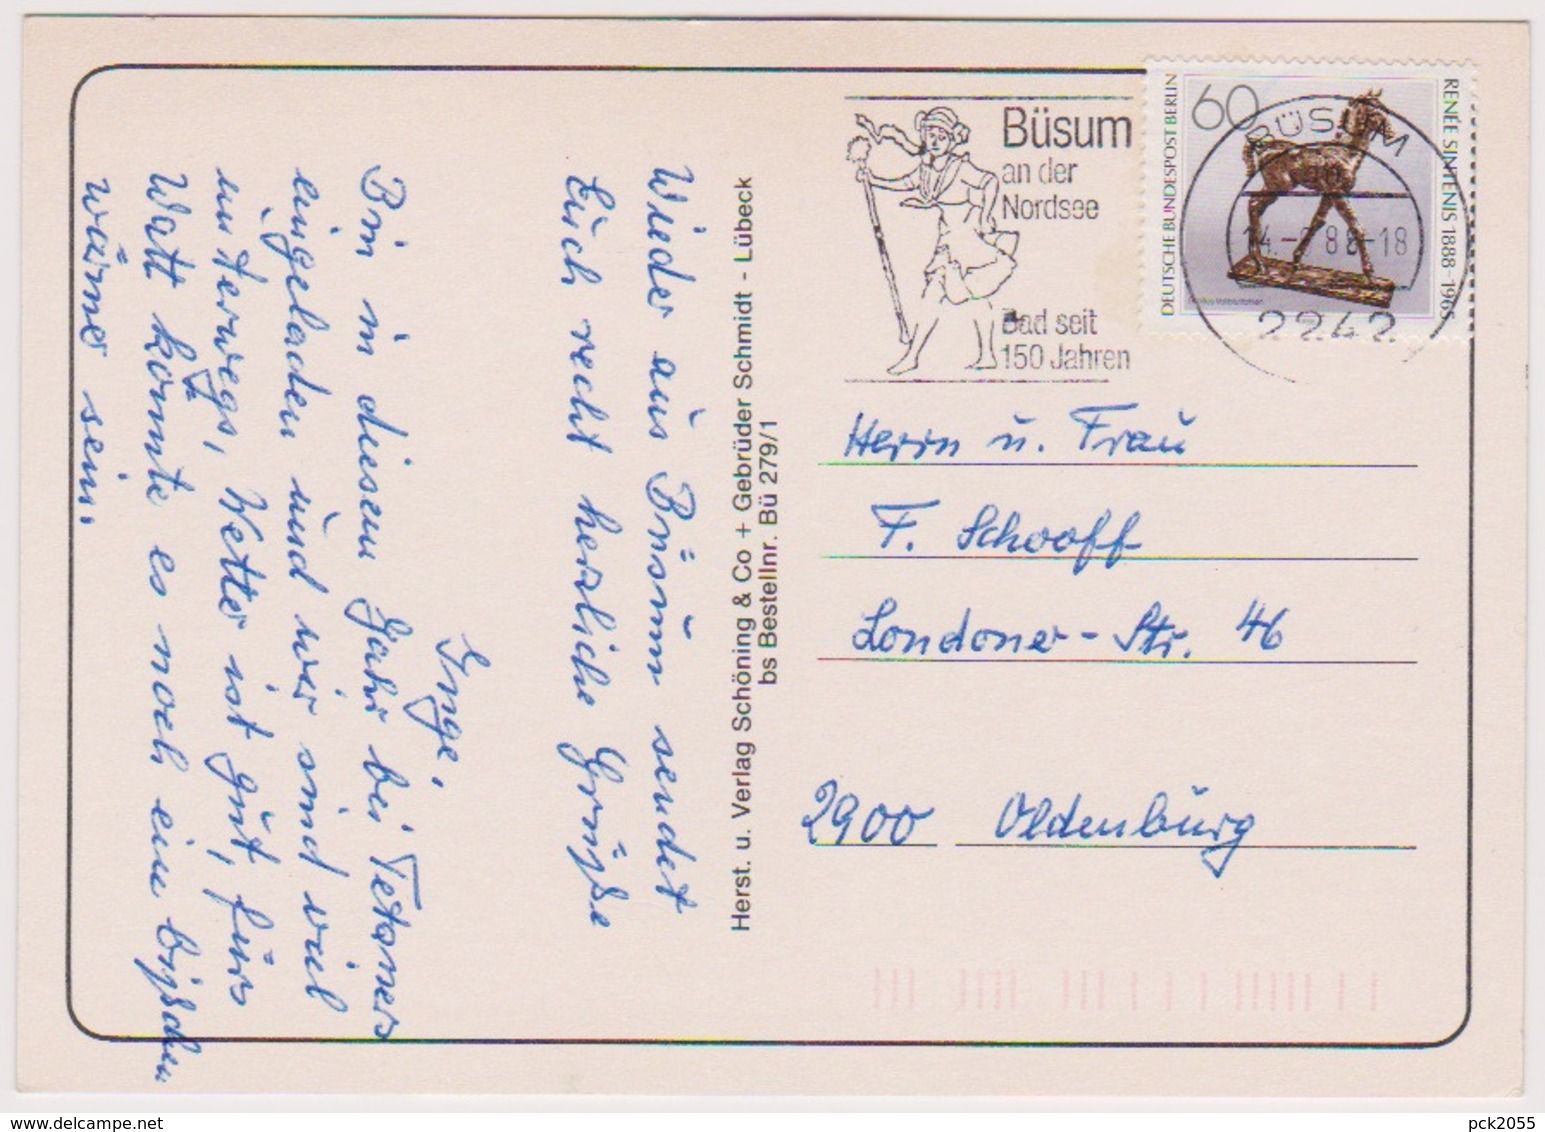 Wieder aus Büsum sendet
Euch recht herzliche Grüße
Inge,
Bin in diesem Jahr bei Tetaners
eingeladen und wir sind viel
unterwegs, Wetter ist gut, fürs
Watt könnte es noch ein bißchen
wärmer sein.
Herst. u. Verlag Schöning & Co + Gebrüder Schmidt - Lübeck
bs Bestellnr. Bü 279/1
Büsum
an der
Nordsee
Bad seit
150 Jahren
DEUTSCHE BUNDESPOST BERLIN
60
RENÉE SINTENIS 1888-1965
BÜSUM
88-18
2242
Herrn u. Frau
F. Schooff
Londoner-Str. 46
2900 Oldenburg
pck2055